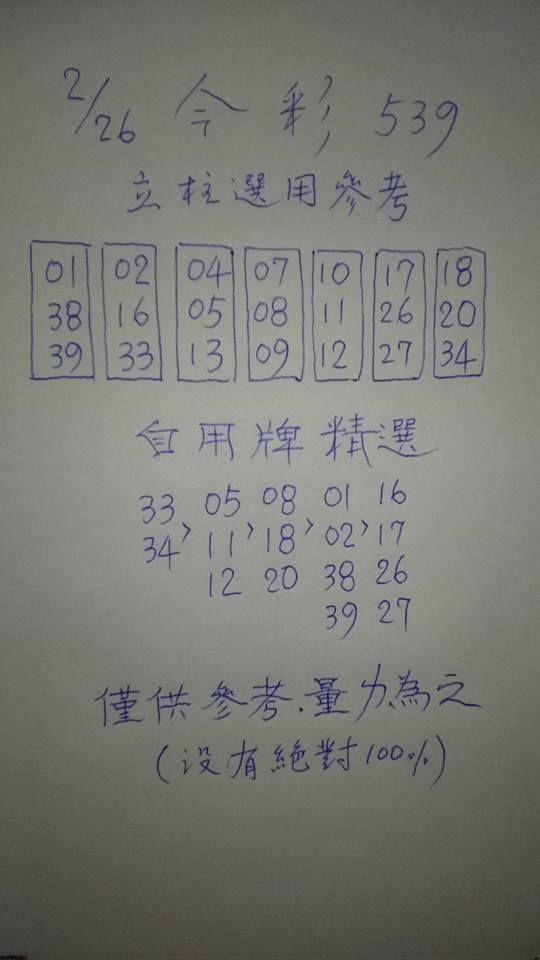 2/26 今彩539
立柱選用參考
01 02 04 07 10 17 18
38 16 05 08 11 26 20
39 33 13 09 12 27 34
自用牌精選
33 05 08 01 16
34 > 11 > 18 > 02 > 17
12 20 38 26
39 27
僅供參考.量力為之
(没有絕對100%)